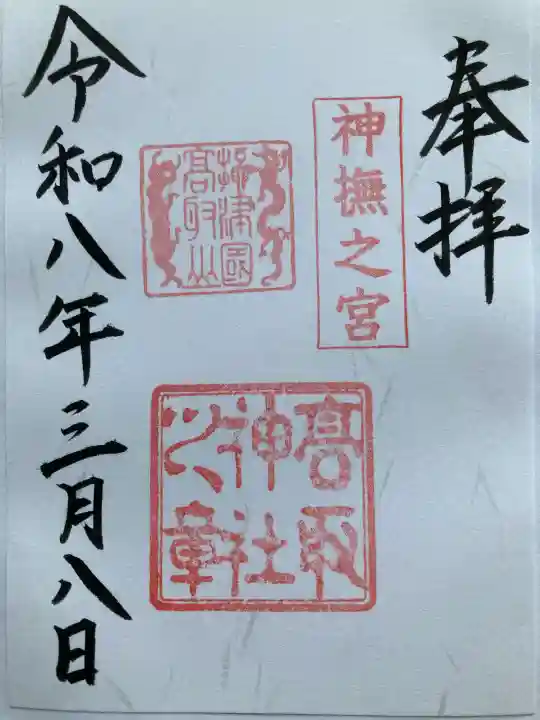 奉拝
神撫之宮
摂津國
高取山
髙取
神社
之章
令和八年三月八日